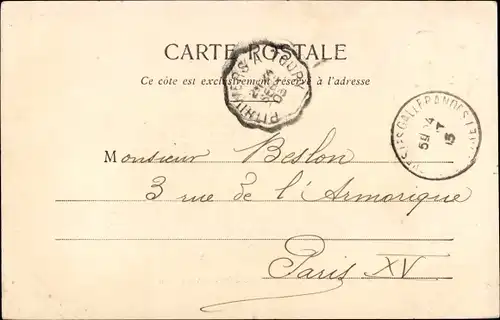 CARTE POSTALE
Ce côté est exclusivement réservé à l'adresse
PITHIVIERS A TOURY
Monsieur Beslon
3 rue de l'Armorique
Paris XV